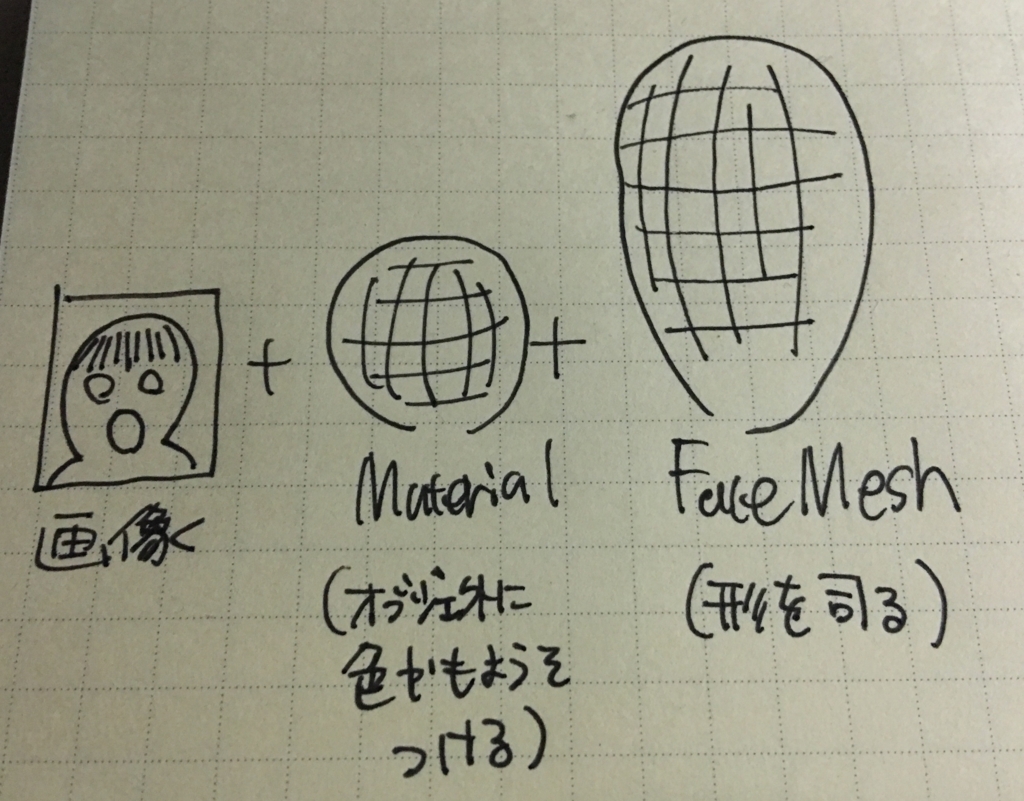 画像
Material
(オブジェクトに
色やもようを
つける)
FaceMesh
(形を司る)